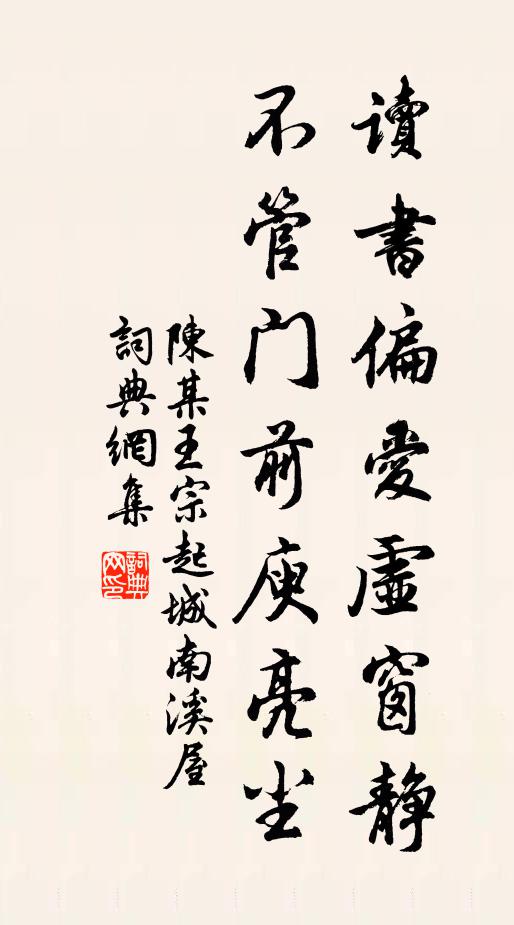 讀書偏愛虛窗靜
不管門前庾亮尘
陳某王宗起城南溪屋
詞典網集
詞典
网印